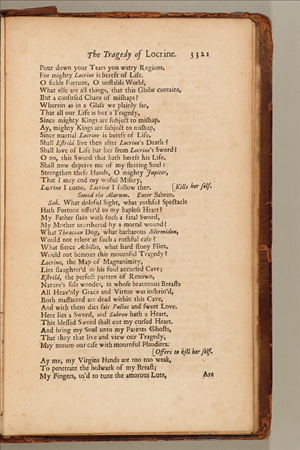 The Tragedy of Locrine. 3321
Pour down your Tears you watry Regions,
For mighty Locrine is bereft of Life.
O fickle Fortune, O unstable World,
What else are all things, that this Globe contains,
But a confused Chaos of mishaps?
Wherein as in a Glass we plainly see,
That all our Life is but a Tragedy,
Since mighty Kings are subject to mishap.
Ay, mighty Kings are subject to mishap,
Since martial Locrine is bereft of Life.
Shall Estrild live then after Locrine's Death?
Shall love of Life bar her from Locrine's Sword?
O no, this Sword that hath bereft his Life,
Shall now deprive me of my fleeting Soul:
Strengthen these Hands, O mighty Jupiter,
That I may end my woful Misery,
Locrine I come, Locrine I follow thee. [Kills her self.
Sound the Alarum. Enter Sabren.
Sab. What doleful Sight, what ruthful Spectacle
Hath Fortune offer'd to my hapless Heart?
My Father slain with such a fatal Sword,
My Mother murthered by a mortal wound!
What Thracian Dog, what barbarous Mirmidon,
Would not relent at such a ruthful case?
What fierce Achilles, what hard stony Flint,
Would not bemoan this mournful Tragedy?
Locrine, the Map of Magnanimity,
Lies slaughter'd in his foul accursed Cave;
Estrild, the perfect pattern of Renown,
Nature's sole wonder, in whose beauteous Breasts
All Heav'nly Grace and Virtue was inshrin'd,
Both massacred are dead within this Cave,
And with them dies fair Pallas and sweet Love.
Here lies a Sword, and Sabren hath a Heart,
This blessed Sword shall cut my cursed Heart.
And bring my Soul unto my Parents Ghosts,
That they that live and view our Tragedy,
May mourn our case with mournful Plaudites.
[Offers to kill her self.
Ay me, my Virgins Hands are too too weak,
To penetrate the bulwark of my Breast;
My Fingers, us'd to tune the amorous Lute,
Are